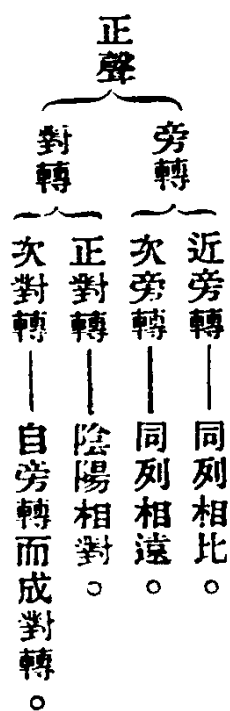 正聲
旁轉
近旁轉——同列相比。
次旁轉——同列相遠。
對轉
正對轉——陰陽相對。
次對轉——自旁轉而成對轉。